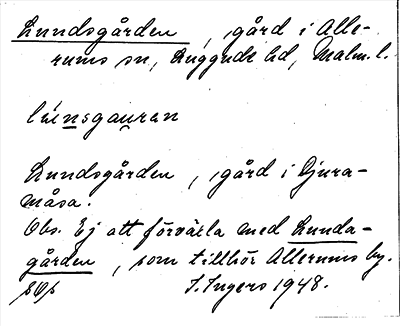 Lundsgården, gård i Alle-
rums sn, Luggude hd, Malm. l.
Lundsgården, gård i Djura-
måsa.
Obs. Ej att förväxla med Lunda-
gården, som tillhör Allerums by.
I. Ingers 1948.